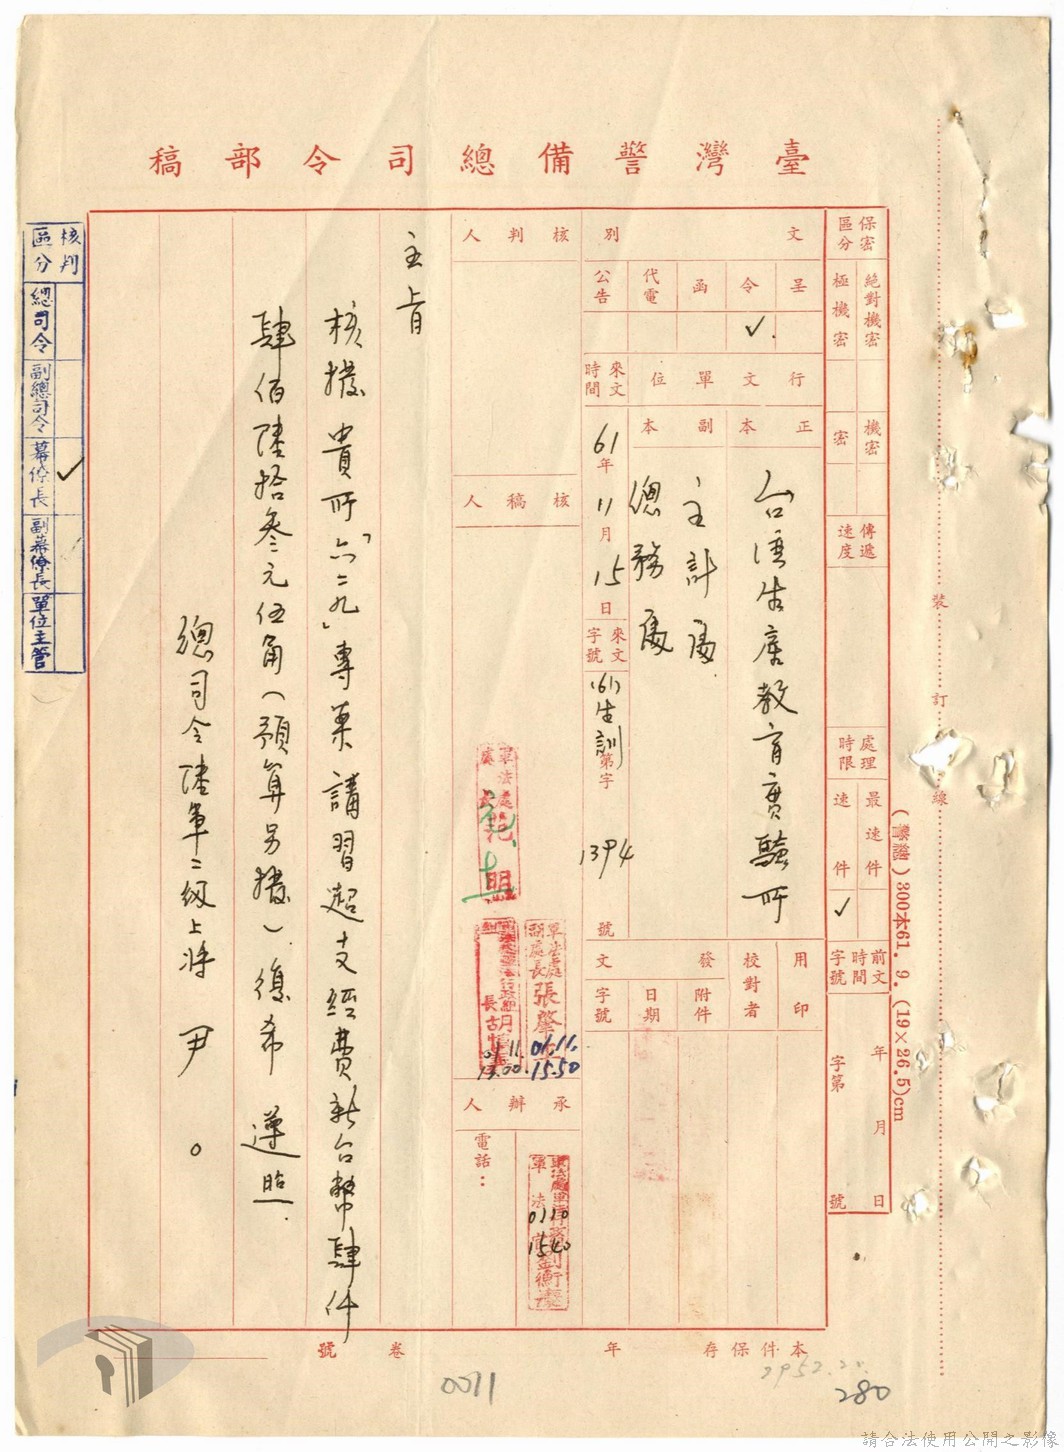 臺灣警備總司令部稿
保密區分
絕對機密
極機密
機密
密
傳遞速度
處理時限
最速件
速件
✓
前文時間字號
年月日
字第號
文別
呈
令
✓
函
代電
公告
行文單位
正本
台灣生產教育實驗所
副本
主計處
總務處
來文時間
61年11月15日
來文字號
(61)生訓字第1394號
用印
校對者
發文
附件
日期
字號
核判人
核稿人
軍法處
處長
范明
軍法處副處長張肇
61.11.
15.50
61.11.
17.00
承辦人
電話：
0110
1540
主旨
核撥貴所「六二九」專案講習超支經費新台幣肆仟
肆佰陸拾叁元伍角(預算另撥)復希 遵照.
總司令陸軍二級上將 尹 ○
核判區分
總司令
副總司令
幕僚長
✓
副幕僚長
單位主管
裝訂線
300本61. 9. (19×26.5)cm
本件保存年
卷號
0071
280
請合法使用公開之影像